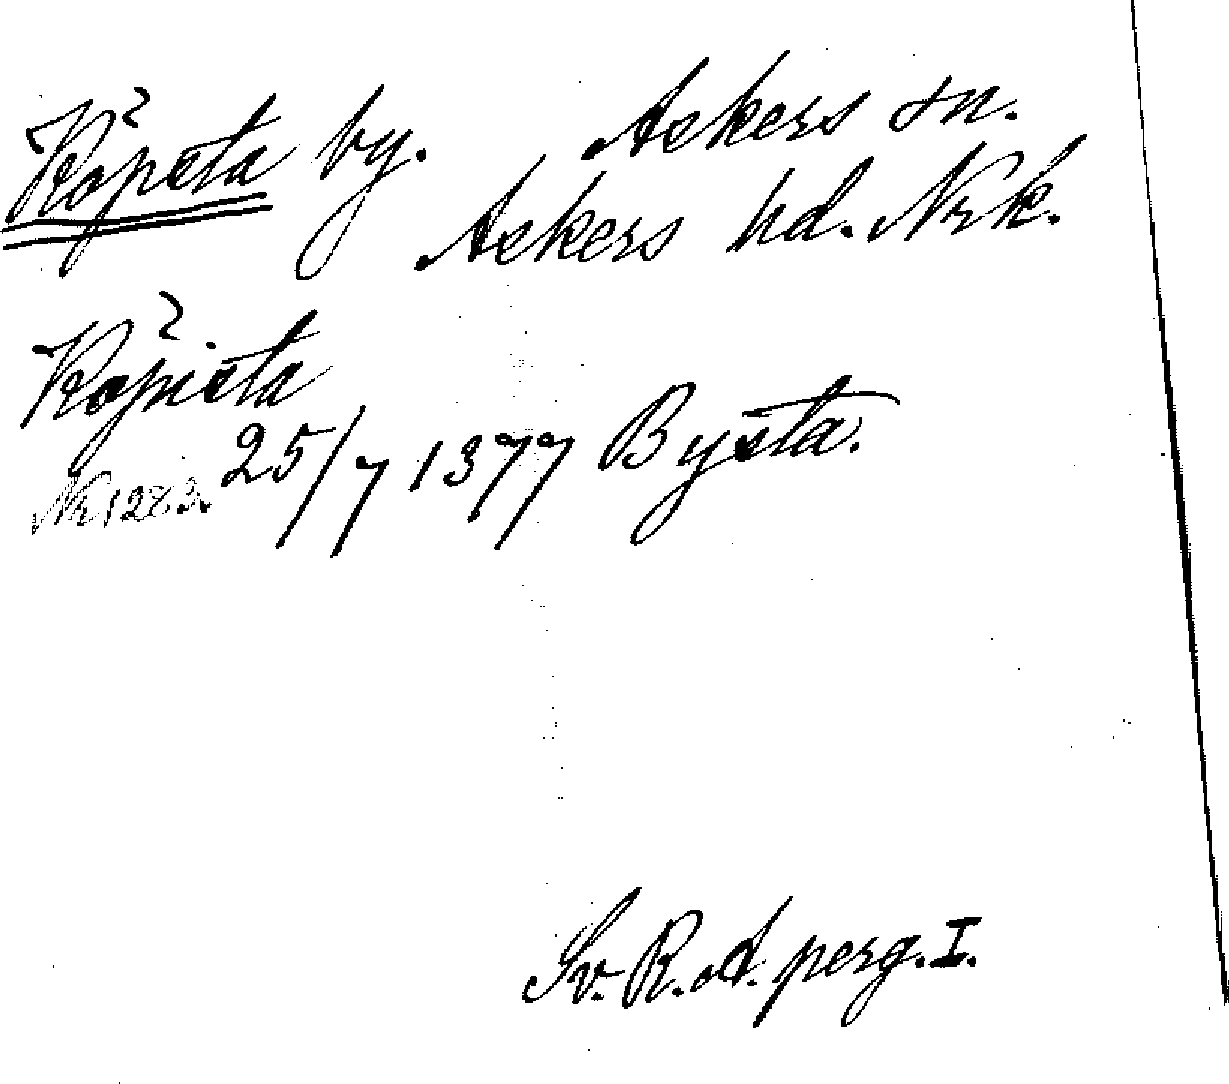 Köpsta by. Askers sn.
Askers hd. Nrk.
Köpista
25/7 1377 Bysta.
Sv. R. A. perg. I.